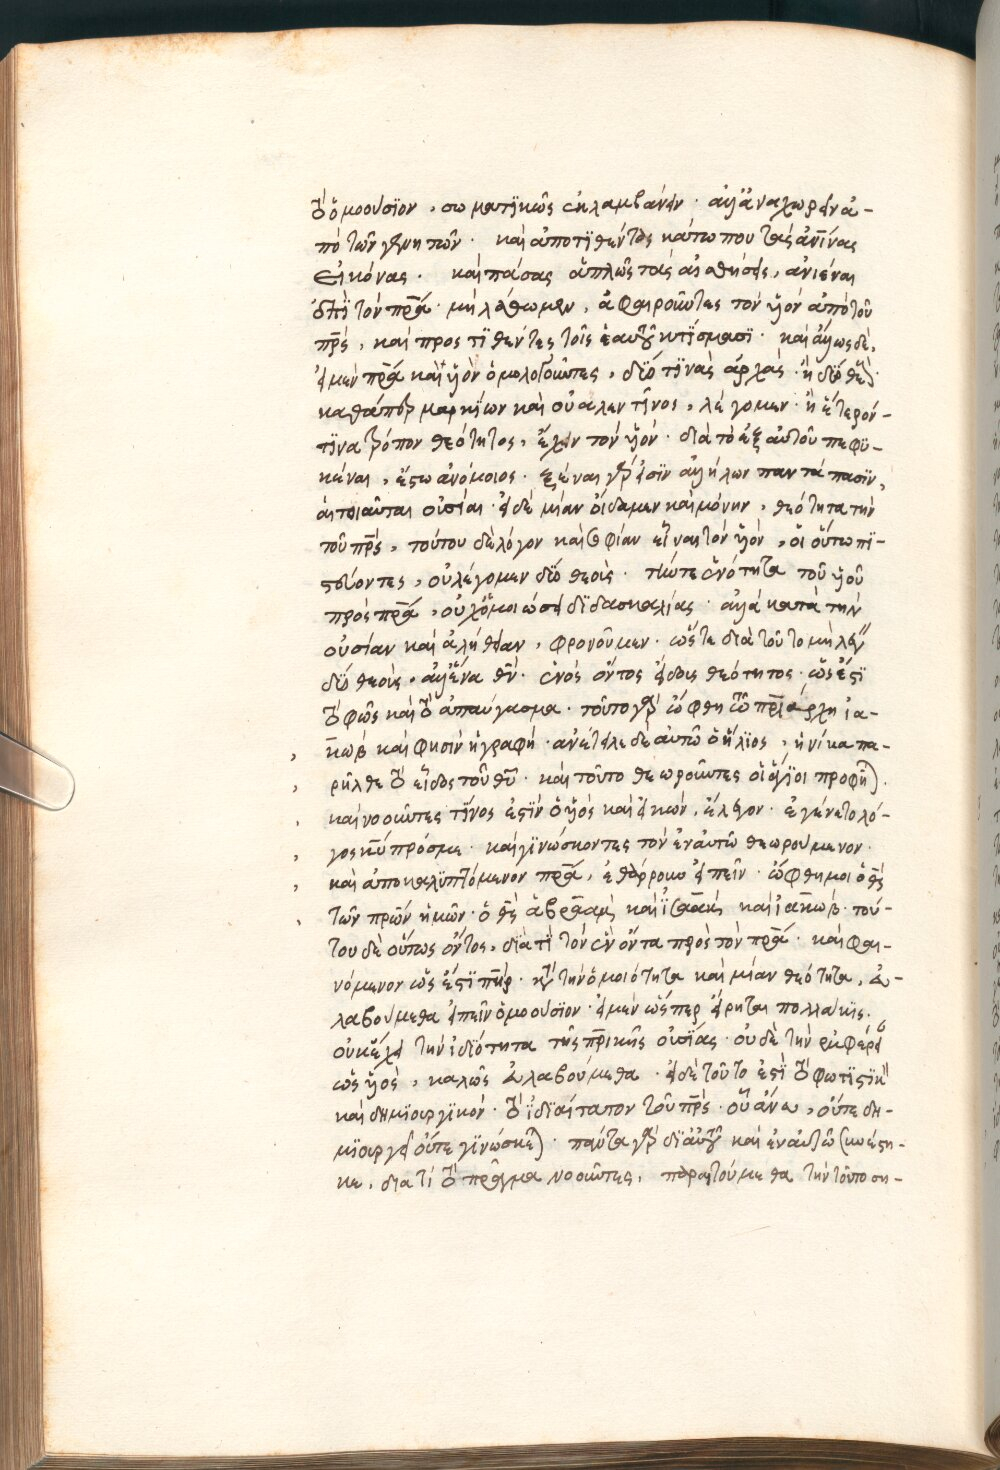 τὸ ὁμοούσϊον, σωματϊκῶς ἐκλαμβάνειν· ἀλλ' ἀναχωρεῖν ἀ-
πὸ τῶν γεννητῶν· καὶ ἀποτϊθέντας κάτω που τὰς ἀν̅ι̅νας
εἰκόνας· καὶ πάσας ἁπλῶς τὰς αἰσθήσεις, ἀνιέναι
ἐπὶ τὸν πρ̅α· μὴ λάθωμεν, ἀφαιροῦντες τὸν ὑὸν ἀπὸ τοῦ
πρ̅ς, καὶ προστϊθέντες τοῖς ἑαυτοῦ κτίσμασϊ· καὶ ἄλλως δὲ,
εἰ μὲν πρ̅α καὶ ὑὸν ὁμολογοῦντες, δύο τϊνὰς ἀρχὰς· ἢ δύο θεοὺς
καθάπερ μαρκΐων καὶ οὐαλεντῖνος, λέγομεν· ἢ ἕτερόν-
τϊνα τρόπον θεότητος, ἔχειν τὸν ὑόν· διὰ τὸ ἐξ αὐτοῦ πεφϋ-
κέναι, ἔστω ἀνόμοιος· ξέναι γάρ εἰσϊν ἀλλήλων παντάπασϊν,
αἱ τοιαῦται οὐσίαι· εἰ δὲ μίαν οἴδαμεν καὶ μόνην, θεότητα τὴν
τοῦ πρ̅ς, τούτου δὲ λόγον καὶ σοφίαν εἶναι τὸν ὑὸν, οἱ οὕτω πϊ-
στεύοντες, οὐ λέγομεν δύο θεούς· τήν τε ἑνότητα τοῦ ὑοῦ
πρὸς πρ̅α, οὐχ ὁμοιώσει δϊδασκαλίας· ἀλλὰ κατὰ τὴν
οὐσίαν καὶ ἀλήθειαν, φρονοῦμεν· ὥστε διὰ τοῦτο μὴ λέγειν
δύο θεοὺς, ἀλλ' ἕνα θν̅· ἑνὸς ὄντος εἴδους θεότητος· ὡς ἔστϊ
τὸ φῶς καὶ τὸ ἀπαύγασμα· τοῦτο γὰρ ὤφθη τῷ πρ̅ιάρχη ἰα-
κὼβ καὶ φησὶν ἡ γραφή· ἀνέτειλε δὲ αὐτῶ ὁ ἥλϊος, ἡνίκα πα-
ρῆλθε τὸ εἶδος τοῦ θυ̅· καὶ τοῦτο θεωροῦντες οἱ ἅγϊοι προφῆται.
καὶ νοοῦντες τίνος ἐστϊν ὁ ὑὸς καὶ εἰκὼν, ἔλεγον· ἐγένετο λό-
γος κυ̅ πρός με· καὶ γϊνώσκοντες τὸν ἐν αὐτῶ θεωρούμενον·
καὶ ἀποκαλϋπτόμενον πρ̅α, ἐθάρρουν εἰπεῖν· ὤφθη μοι ὁ θς̅
τῶν πρω̅ν ἡμῶν· ὁ θς̅ ἀβραὰμ, καὶ ἰσαὰκ, καὶ ἰακώβ· τού-
του δὲ οὕτως ὄντος, δϊὰ τί τὸν ἓν ὄντα πρὸς τὸν πρ̅α· καὶ φαι-
νόμενον ὡς ἔστϊ πη̅ρ· κατὰ τὴν ὁμοιότητα καὶ μίαν θεότητα, εὐ-
λαβούμεθα εἰπεῖν ὁμοούσϊον· εἰ μὲν ὥσπερ εἴρηται πολλάκϊς·
οὐκ ἔχει τὴν ἰδιότητα τῆς πρ̅ικῆς οὐσΐας· οὐδὲ τὴν ἐμφέρειαν
ὡς ὑὸς, καλῶς εὐλαβούμεθα· εἰ δὲ τοῦτο ἐστὶ τὸ φωτϊστϊκὸν
καὶ δημϊουργϊκὸν· τὸ ἰδϊαίτατον τοῦ πρ̅ς· οὗ ἄνευ, οὔτε δη-
μϊουργεῖ οὔτε γϊνώσκεται· πάντα γὰρ δϊ' αὐτοῦ καὶ ἐν αὐτῶ συνέστη-
κε, διατί τὸ πρᾶγμα νοοῦντες, παραιτούμεθα τὴν τοῦτο ση-